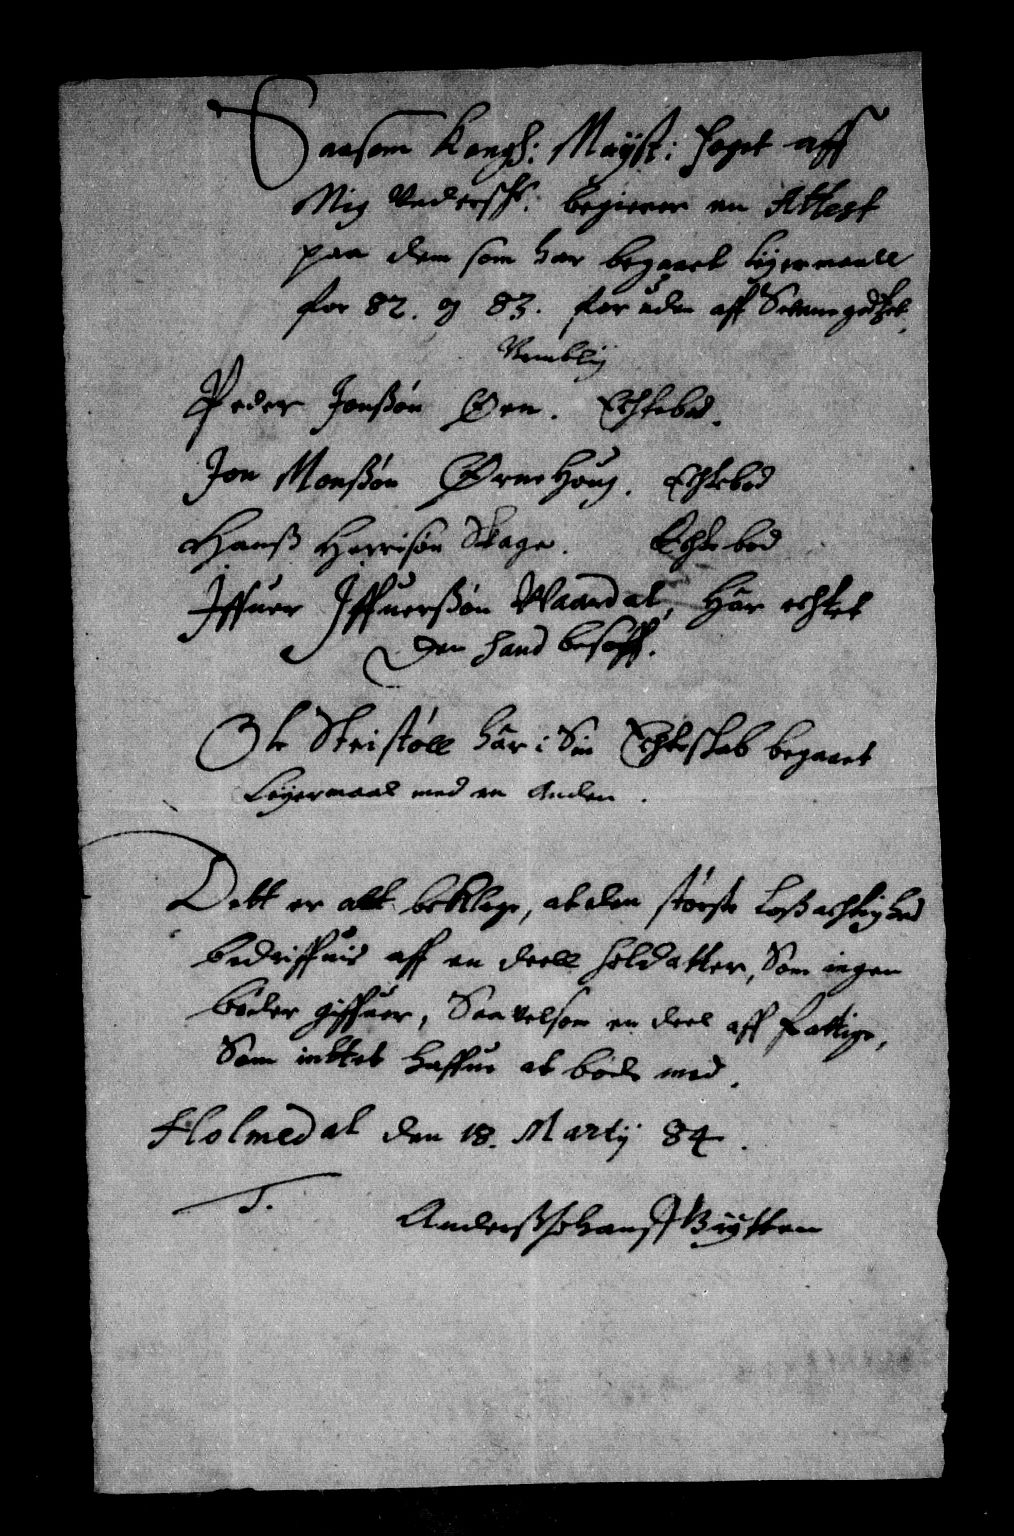 Saasom Kongl: Mayst: foget aff
Mig Underschr: begierer en Attest
paa dem som har begaaet leyermaall
for 82. og 83. for uden aff
Nemblig
Peder Jonßøn Øen. Echtebod.
Jon Monßøn Ørnehoug. Echtebod
Hanß Skage. Echtebod
Iffuer Iffuerßøn Waardal, Har echtet
den hand besoff.
Ole har i Sin Echteskab begaaet
Leyermaal med en Anden.
Dett er att beklage, at den største Løßachtighed
bedriffuis aff en deell soldatter, Som ingen
bøder giffuer, Saavelsom en deel aff fattige,
Som inttet haffue at bøde med.
Holmedal den 18. Martij 84.
T.
Anderß